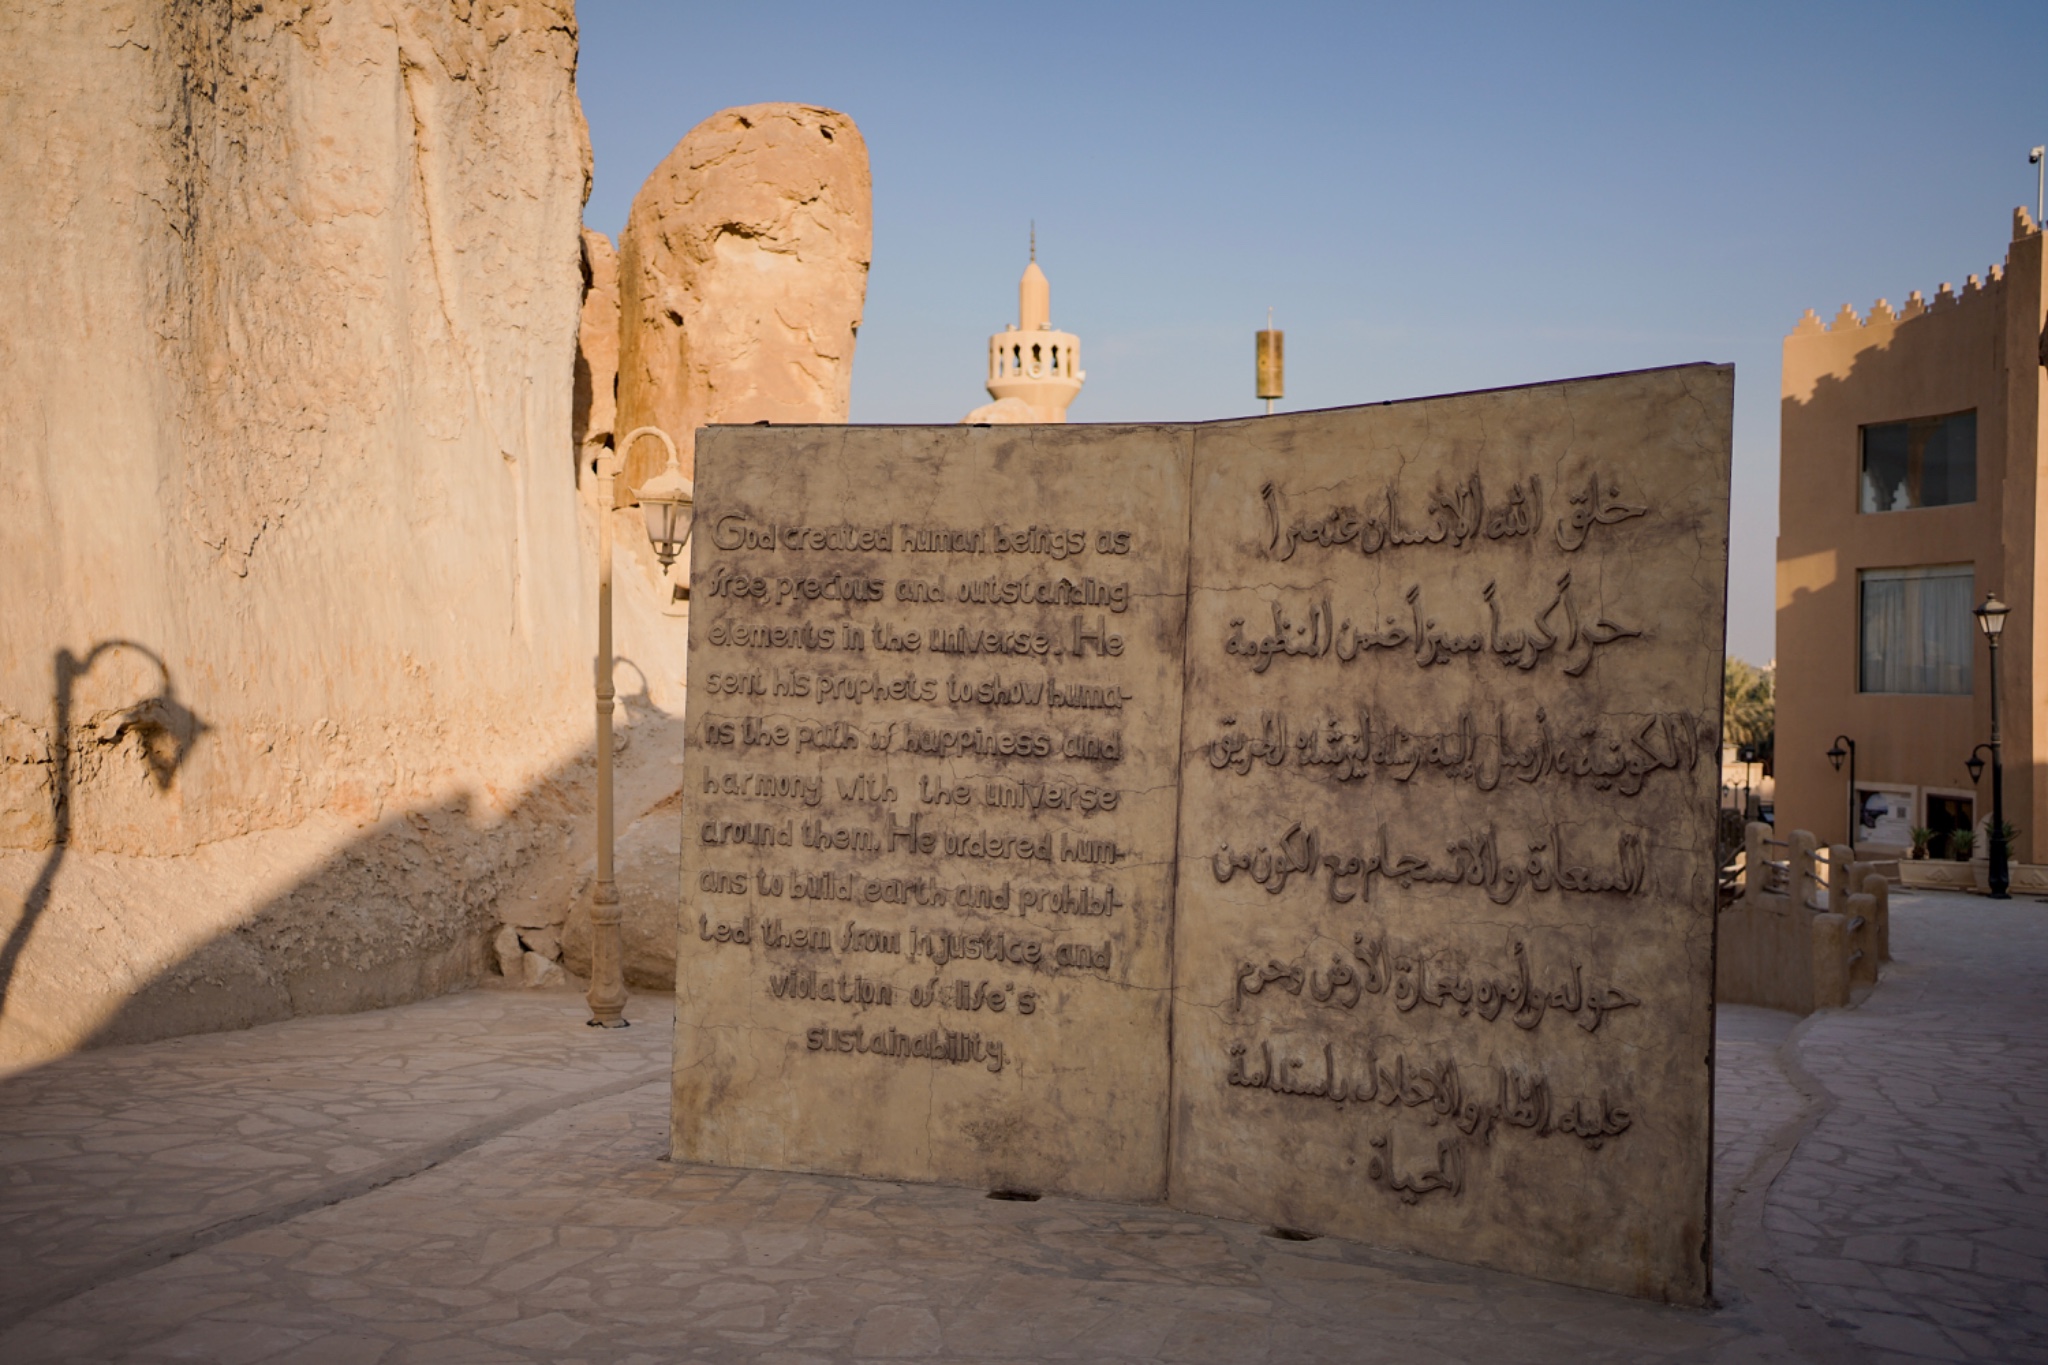 God created human beings as
free, precious and outstanding
elements in the universe. He
sent his prophets to show huma-
ns the path of happiness and
harmony with the universe
around them. He ordered hum-
ans to build earth and prohibi-
ted them from injustice and
violation of life's
sustainability.
خلق الله الإنسان عنصراً
حراً كريماً مميزاً ضمن المنظومة
الكونية، أرسل إليه رسله ليرشده لطريق
السعادة والانسجام مع الكون من
حوله وأمره بعمارة الأرض وحرم
عليه الظلم والإخلال باستدامة
الحياة.